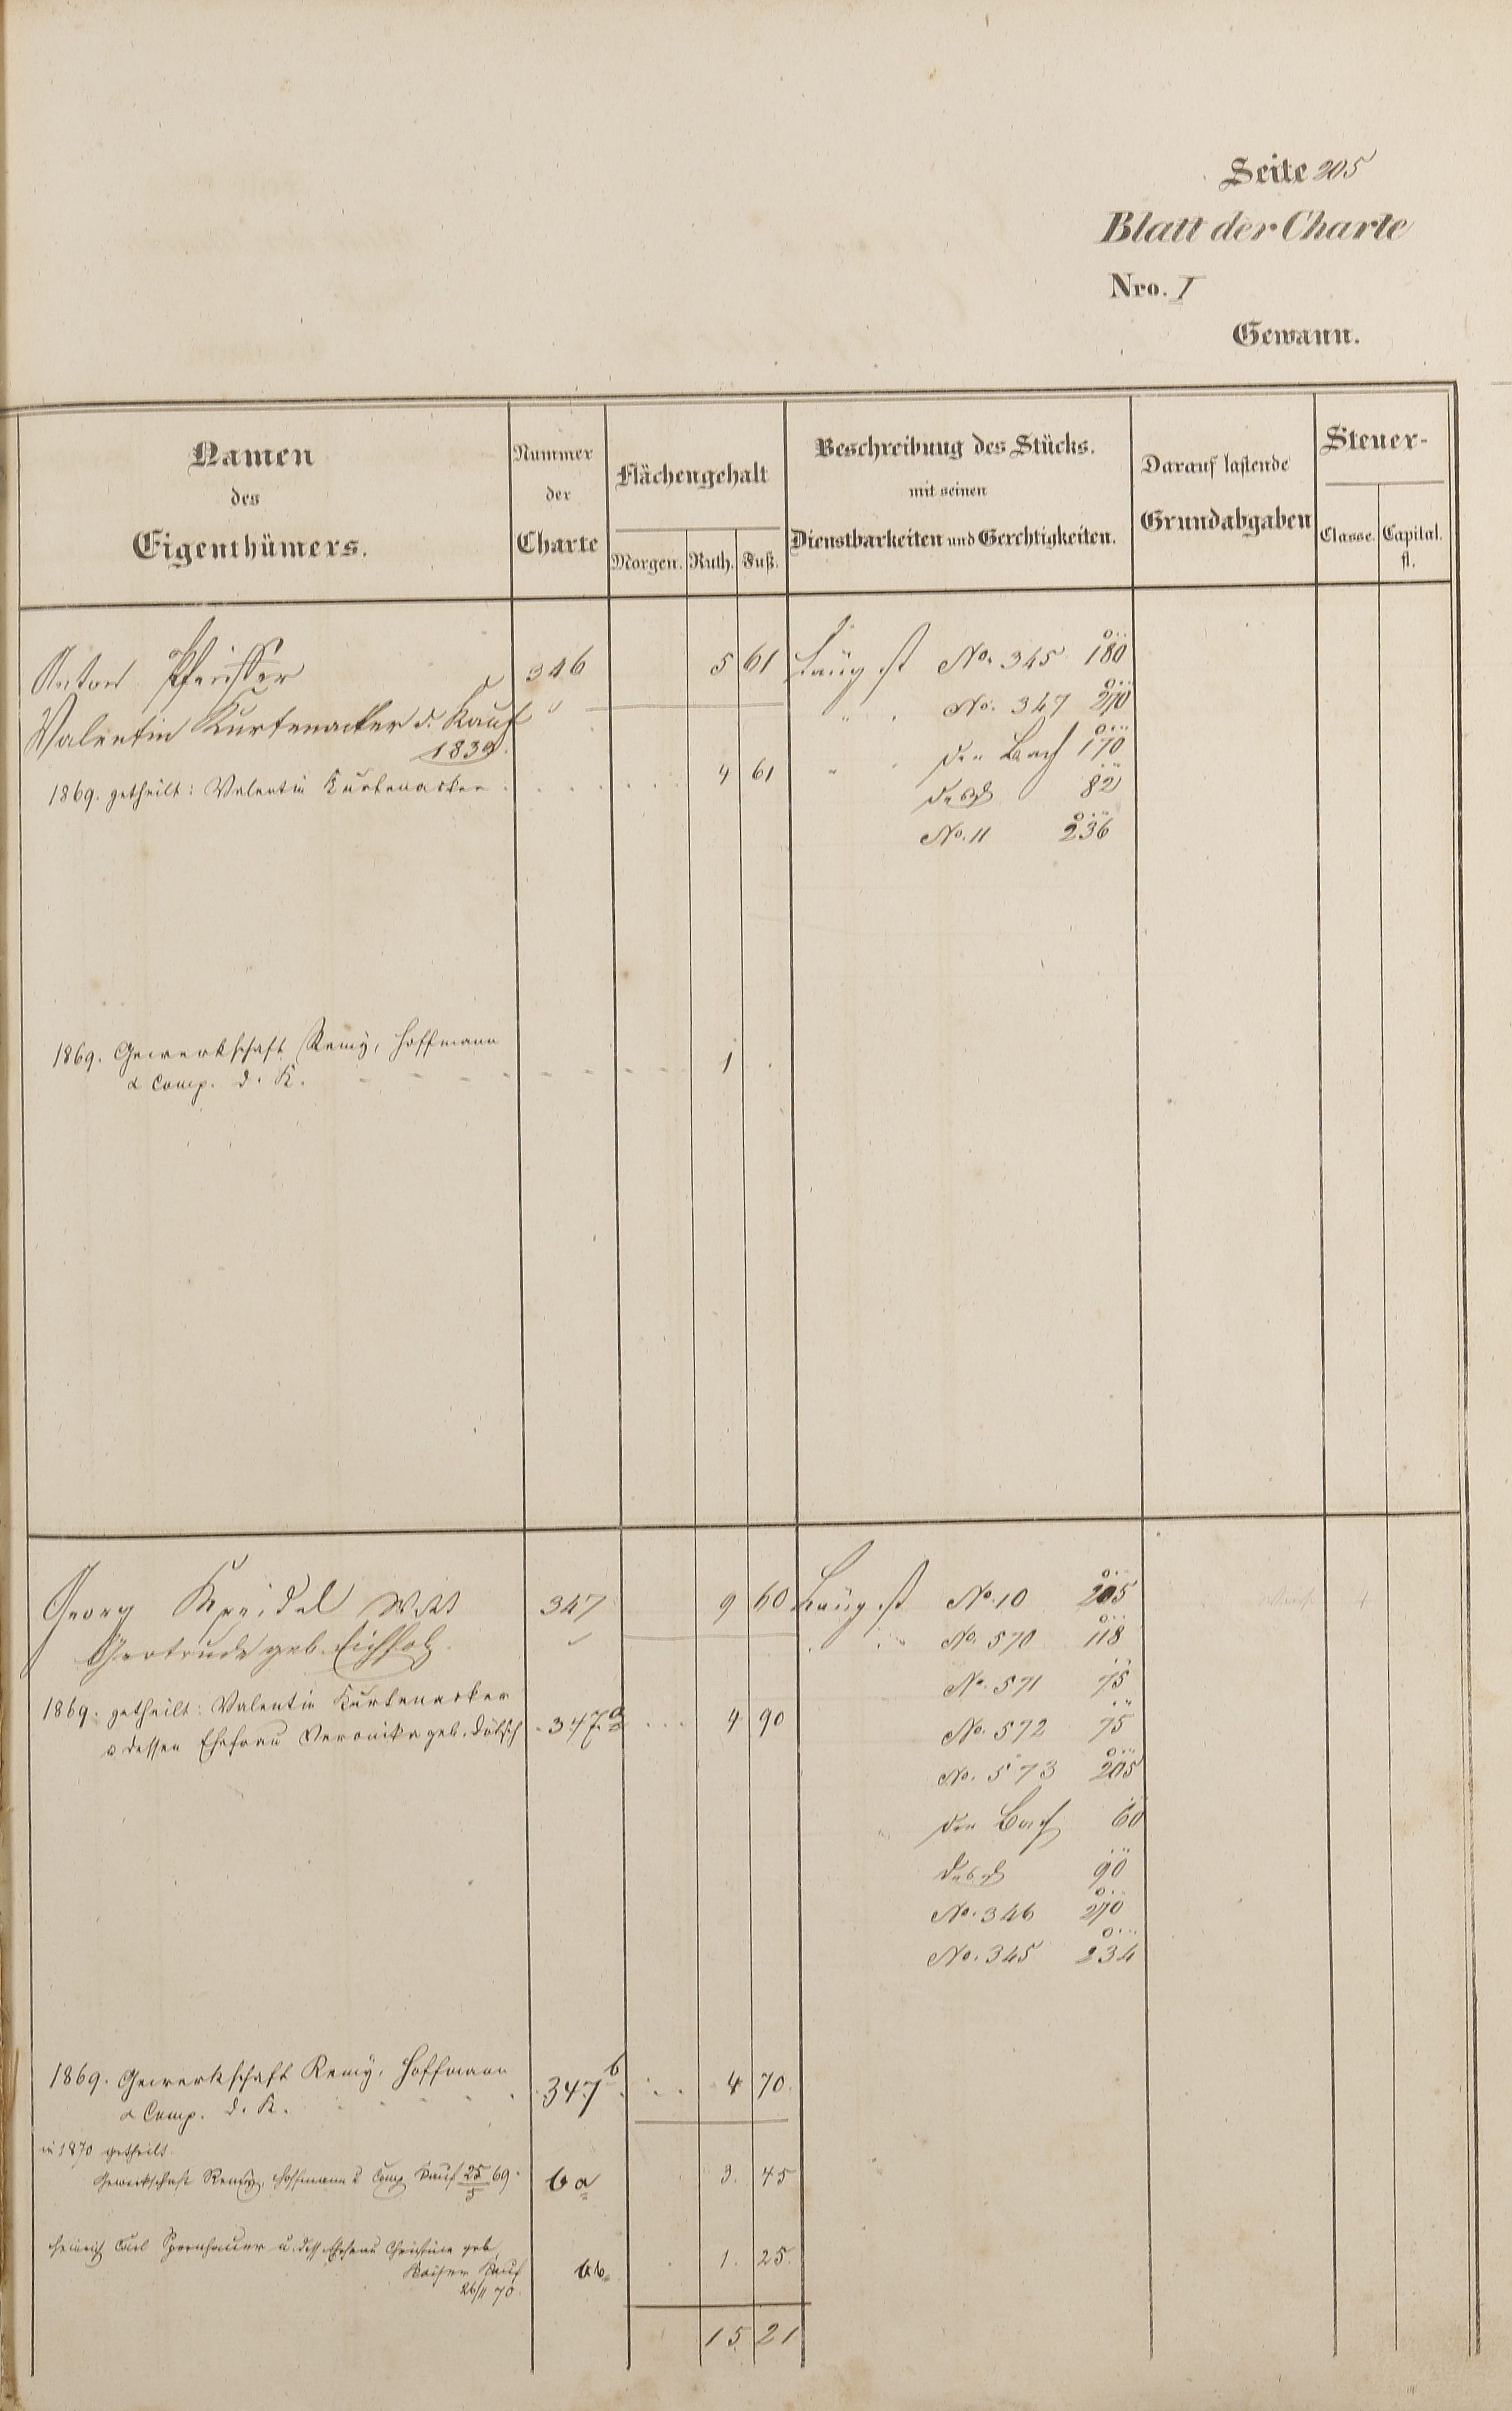 Seite 205
Blatt der Charte
Nro. I
Gewann.
Namen des Eigenthümers.
Nummer der Charte
Flächengehalt
Morgen. Ruth. Fuß.
Beschreibung des Stücks. mit seinen Dienstbarkeiten und Gerechtigkeiten.
Darauf lastende Grundabgaben
Steuer-
Classe. Capital. fl.
Anton 346 5 61 No. 345 180
Valentin Kurtenacker d. Kauf " " " No. 347 270
1839. " " der Bach 170
1869. getheilt: Valentin Kurtenacker 4 61 82
No. 11 236
1869. Gewerkschaft Remy, Hoffmann 1 .
& Comp. d. K.
Georg 347 9 60 No. 10 205
Gertrude geb. Eichholz No. 570 118
No. 571 75
1869: getheilt: Valentin Kurtenacker 347 a 4 90 No. 572 75
u. dessen Ehefrau Veronika geb.
No. 573 205
der Bach 60
90
No. 346 270
No. 345 234
1869. Gewerkschaft Remy, Hoffmann 347 b 4 70
& Comp. d. K.
in 1870 getheilt
Gewerkschaft Remy, Hoffmann & Comp Kauf 25/5 69. b a 3. 45
Heinrich Carl u. dess Ehefrau Christine geb. bb. 1. 25.
Kaiser Kauf
26/11 70.
15 21